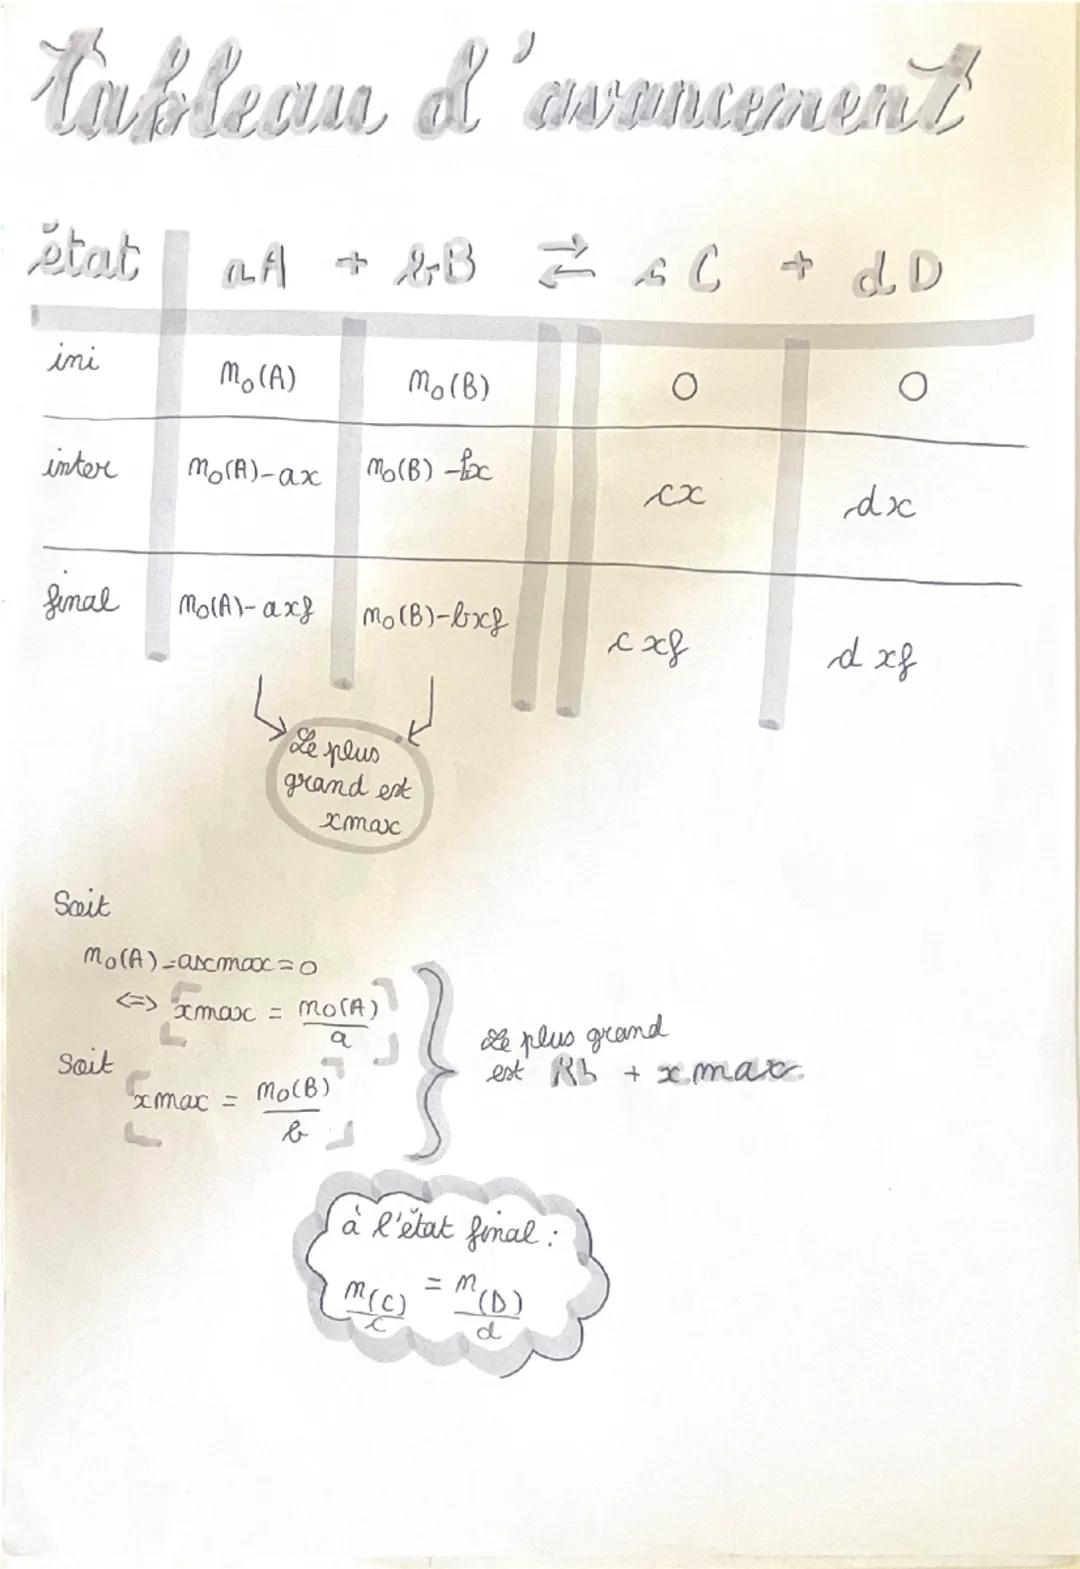 tableau d'avancement
état aA + bB ⇄ c C + d D
ini n₀(A) n₀(B) 0 0
inter n₀(A)-ax n₀(B)-bx cx dx
final n₀(A)-axf n₀(B)-bxf c xf d xf
Le plus
grand est
xmax
Soit
n₀(A)-axmax=0
<=> xmax = n₀(A)/a
Soit
xmax = n₀(B)/b
Le plus grand
est + xmax
à l'état final :
n(C)/c = n(D)/d